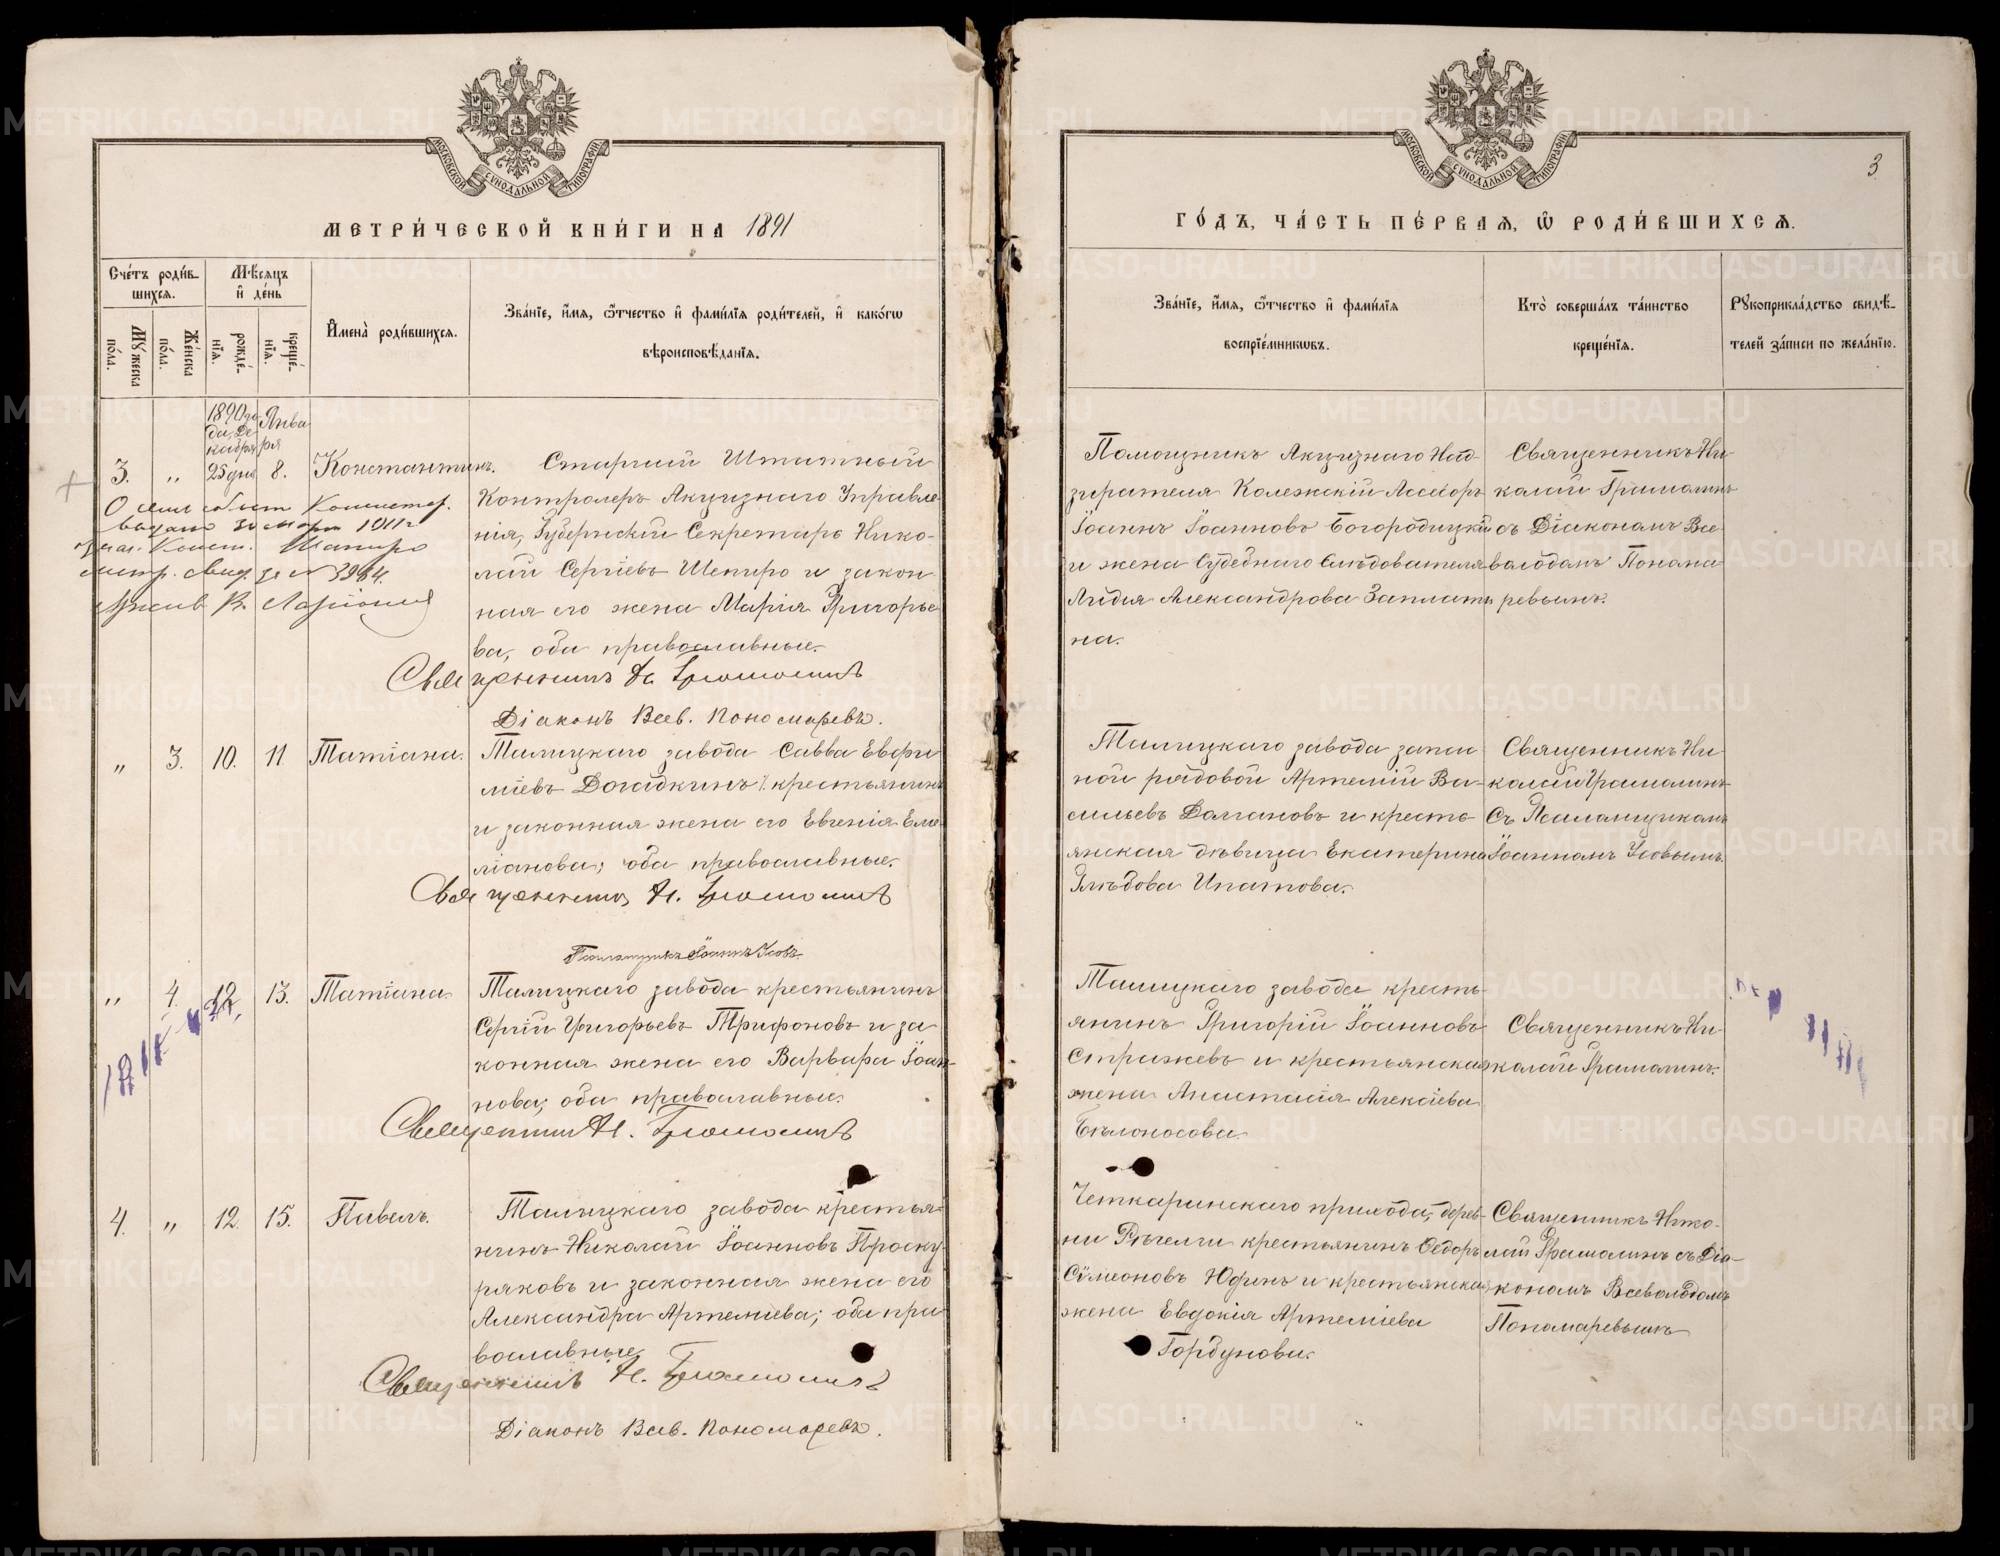 МОСКОВСКОЙ СУНОДАЛЬНОЙ ТИПОГРАФИИ
МЕТРИ́ЧЕСКОЙ КНИ́ГИ НА 1891
Сче́тъ роди́в-
шихсѧ.
Мѣ́сѧцъ
и҆ де́нь
Му́жеска
по́ла.
Же́нска
по́ла.
рожде́-
нїѧ.
креще́-
нїѧ.
И҆мена̀ роди́вшихсѧ.
Зва́нїе, и҆́мѧ, ѻ҆́тчество и҆ фами́лїѧ роди́телей, и҆ како́гѡ
вѣроисповѣ́данїѧ.
1890 го-
да, Де-
кабря
Янва
ря
3. „ 25 дня 8. Константинъ.
Старшій Штатный
Контролеръ Акцизнаго Управле-
нія, Губернскій Секретарь Нико-
лай Сергіевъ Шепиро и закон
ная его жена Марія Григорье
ва, оба православные.
выдано 1911 г
метр. свид. за № 3984.
Священникъ Н. Грамолинъ
Діаконъ Всев. Пономаревъ.
„ 3. 10. 11 Татіана.
Талицкаго завода Савва Евфи
міевъ Догадкинъ крестьянинъ
и законная жена его Евгенія Еме
ліанова; оба православные.
Священникъ Н. Грамолинъ
Псаломщикъ Іоаннъ Усовъ.
„ 4. 12, 13. Татіана
Талицкаго завода крестьянинъ
Сергій Григорьевъ Трифоновъ и за
конная жена его Варвара Іоан-
нова; оба православные.
Священникъ Н. Грамолинъ
4. „ 12. 15. Павелъ.
Талицкаго завода крестья-
нинъ Николай Іоанновъ Проску
ряковъ и законная жена его
Александра Артеміева; оба пра
вославные
Священникъ Н. Грамолинъ
Діаконъ Всев. Пономаревъ.
МОСКОВСКОЙ СУНОДАЛЬНОЙ ТИПОГРАФИИ
3
ГО́ДЪ, ЧА́СТЬ ПЕ́РВАѦ, Ѽ РОДИ́ВШИХСѦ.
Зва́нїе, и҆́мѧ, ѻ҆́тчество и҆ фами́лїѧ
воспрїе́мникѡвъ.
Кто̀ соверша́лъ та́инство
креще́нїѧ.
Рукоприкла́дство свидѣ́-
телей за́писи по жела́нїю.
Помощникъ Акцизнаго Над-
зирателя Колежскій Ассесоръ
Іоаннъ Іоанновъ Богородицкій
и жена Судебнаго Слѣдователя
Лидія Александрова Заплати
на.
Священникъ Ни-
колай Грамолинъ
съ Діакономъ Все
володомъ Понома
ревымъ.
Талицкаго завода запас
ной рядовой Артемій Ва-
сильевъ Долгановъ и кресть-
янская дѣвица Екатерина
Глѣбова Ипатова.
Священникъ Ни-
колай Грамолинъ
Съ Псаломщикомъ
Іоанномъ Усовымъ.
Талицкаго завода кресть-
янинъ Григорій Іоанновъ
Стрижевъ и крестьянская
жена Анастасія Алексіева
Бѣлоносова.
Священникъ Ни-
колай Грамолинъ.
Четкаринскаго прихода, дерев-
ни крестьянинъ Ѳедоръ
Сѵмеоновъ Юдинъ и крестьянская
жена Евдокія Артеміева
Гордунова.
Священникъ Нико-
лай Грамолинъ съ Діа-
кономъ Всеволодомъ
Пономаревымъ
METRIKI.GASO-URAL.RU